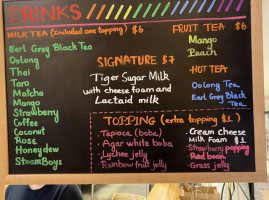 DRINKS
MILK TEA (included one topping) $6
Earl Grey Black Tea
Oolong
Thai
Taro
Matcha
Mango
Strawberry
Coffee
Coconut
Rose
Honeydew
SteamBoys
SIGNATURE $7
Tiger Sugar Milk
with cheese foam and
Lactaid milk
FRUIT TEA $6
Mango
Peach
HOT TEA
Oolong Tea
Earl Grey Black
Tea
TOPPING (extra topping $1)
Tapioca (boba)
Agar white boba
Lychee jelly
Rainbow fruit jelly
Cream cheese
Milk Foam $1
Strawberry popping
Red bean
Grass jelly